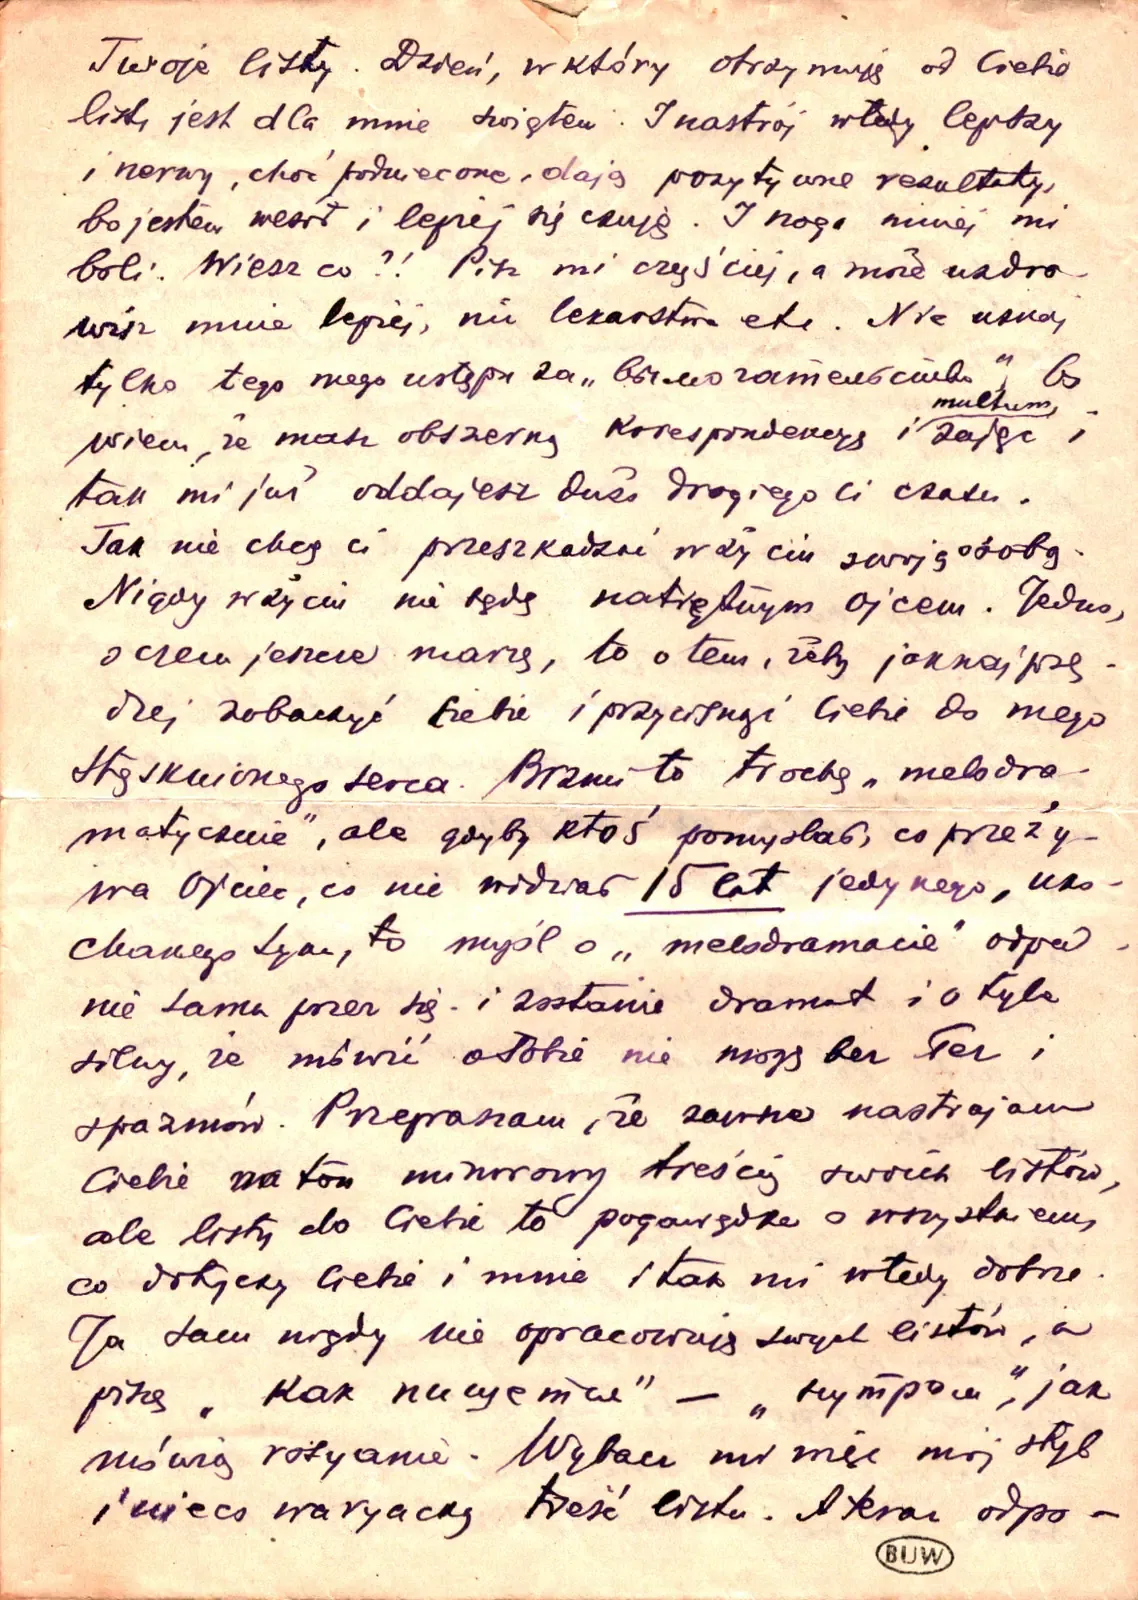 Twoje listy. Dzień, w który otrzymuję od Ciebie
list, jest dla mnie świętem. I nastrój wtedy lepszy
i nerwy, choć podniecone, dają pozytywne rezultaty,
bo jestem wesół i lepiej się czuję. I noga mniej mi
boli. Wiesz co?! Pisz mi częściej, a może uzdro-
wisz mnie lepiej, niż lekarstwa etc. Nie uznaj
tylko tego mego ustępu za „ ", bo
wiem, że masz obszerną korespondencję i multum zajęć i
tak mi już oddajesz dużo drogiego Ci czasu.
Tak nie chcę Ci przeszkadzać w życiu swoją osobą.
Nigdy w życiu nie będę natrętnym Ojcem. Jedno,
o czem jeszcze marzę, to o tem, żeby jaknajprę-
dzej zobaczyć Ciebie i przycisnąć Ciebie do mego
stęsknionego serca. Brzmi to trochę „melodra-
matycznie", ale gdyby ktoś pomyślał, co przeży-
wa Ojciec, co nie widział 15 lat jedynego, uko-
chanego syna, to myśl o „melodramacie" odpad-
nie sama przez się i zostanie dramat i o tyle
silny, że mówić o tobie nie mogę bez łez i
spazmów. Przepraszam, że zawsze nastrajam
Ciebie na ton minorowy treścią swoich listów,
ale listy do Ciebie to pogawędka o wszystkiem,
co dotyczy Ciebie i mnie i tak mi wtedy dobrze.
Ja sam nigdy nie opracowuję swych listów, a
piszę „ " — „ ", jak
mówią rosyanie. Wybacz mi więc mój styl
i nieco waryacką treść listu. A teraz odpo-
BUW